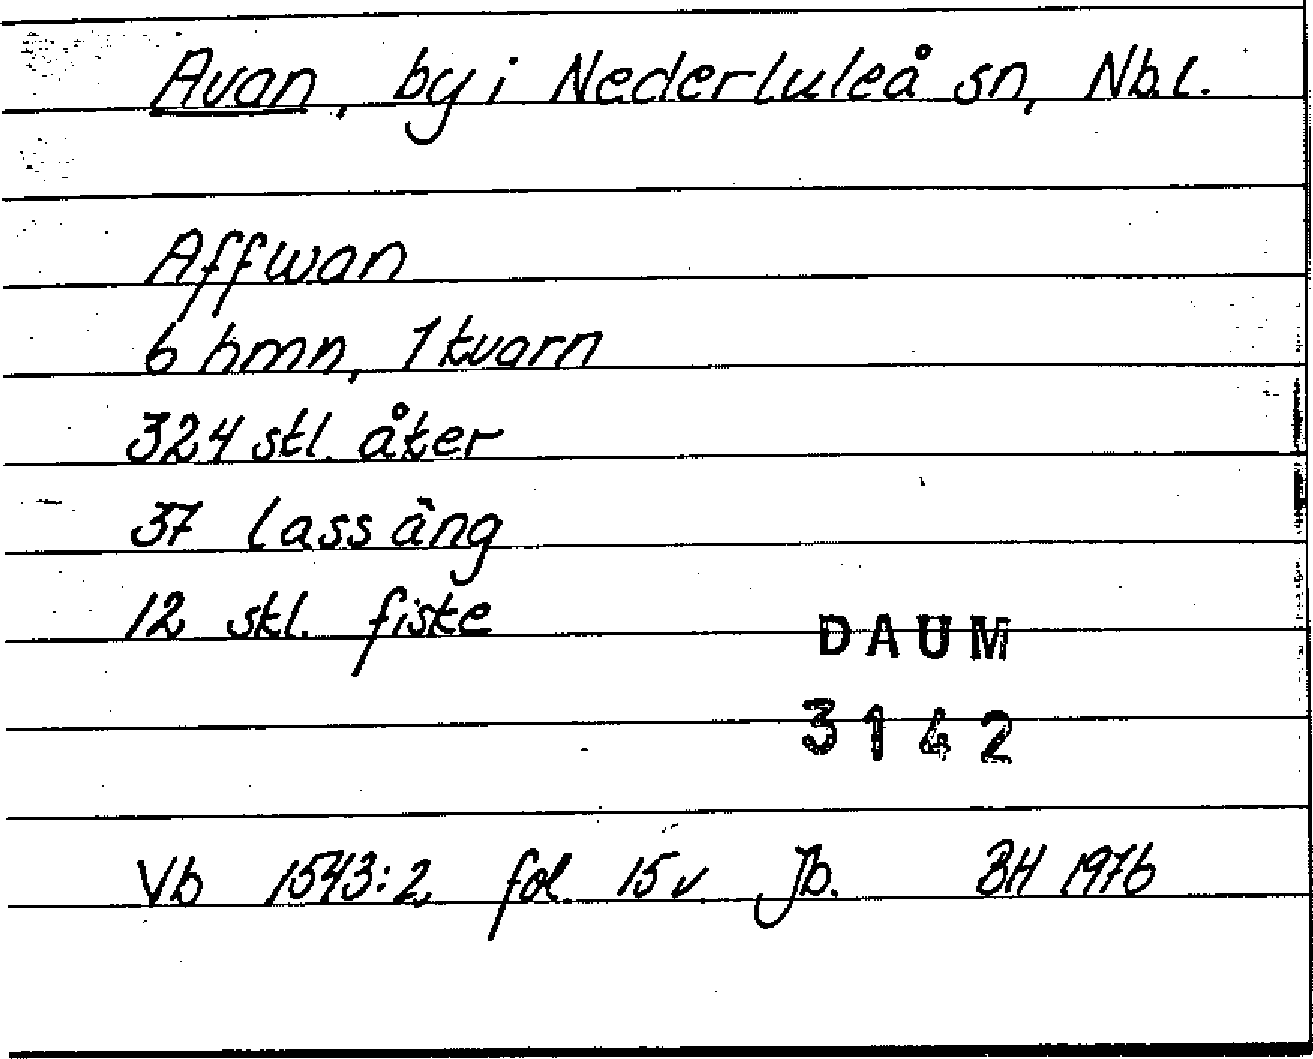 Avan, by i Nederluleå sn, Nb.l.
Affwan
6 hmn, 1 kvarn
324 stl. åker
37 lass äng
12 skl. fiske
DAUM
3142
Vb 1543:2, fol. 15 v Jb. BH 1976